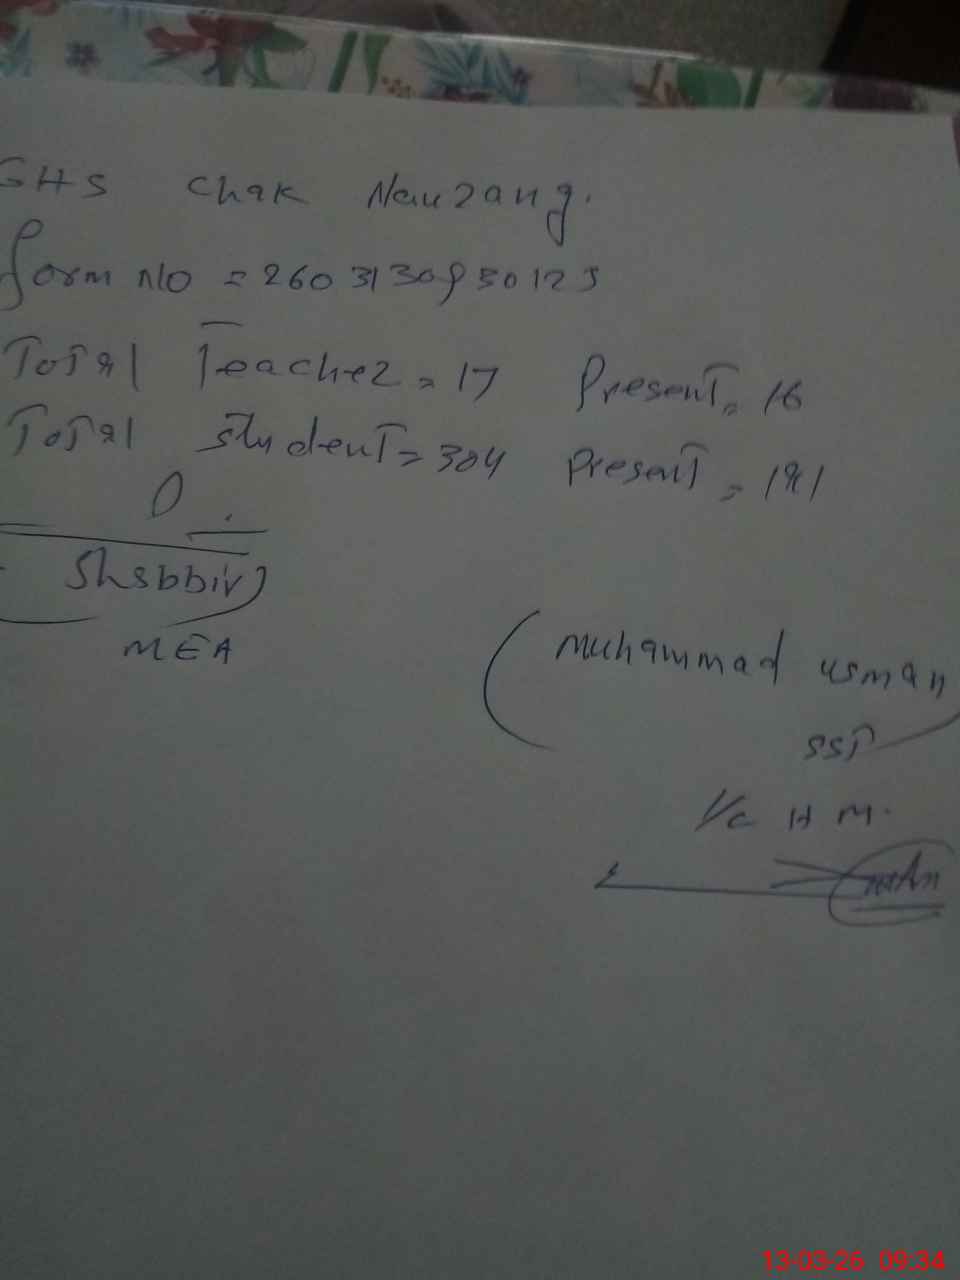 GHS Chak Nauzang.
form No = 2603130950123
Total Teacher = 17 Present = 16
Total student = 304 Present = 191
Shabbir
MEA
(Muhammad usman
SST
I/c H M.
13-03-26 09:34